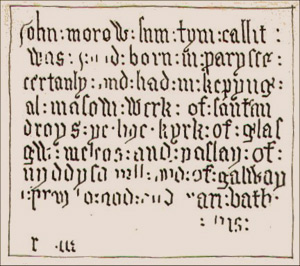 john : morow : sum : tym : callit :
was : and : born : in : parysce :
certanly : and : had : in : kepyng :
al : mason : werk : of : santan
droys : ye : hye : kyrk : of : glas
gw : melros : and : paslay : of :
nyddysdayll : and : of : galway
: pray : to : god : and mari : bath